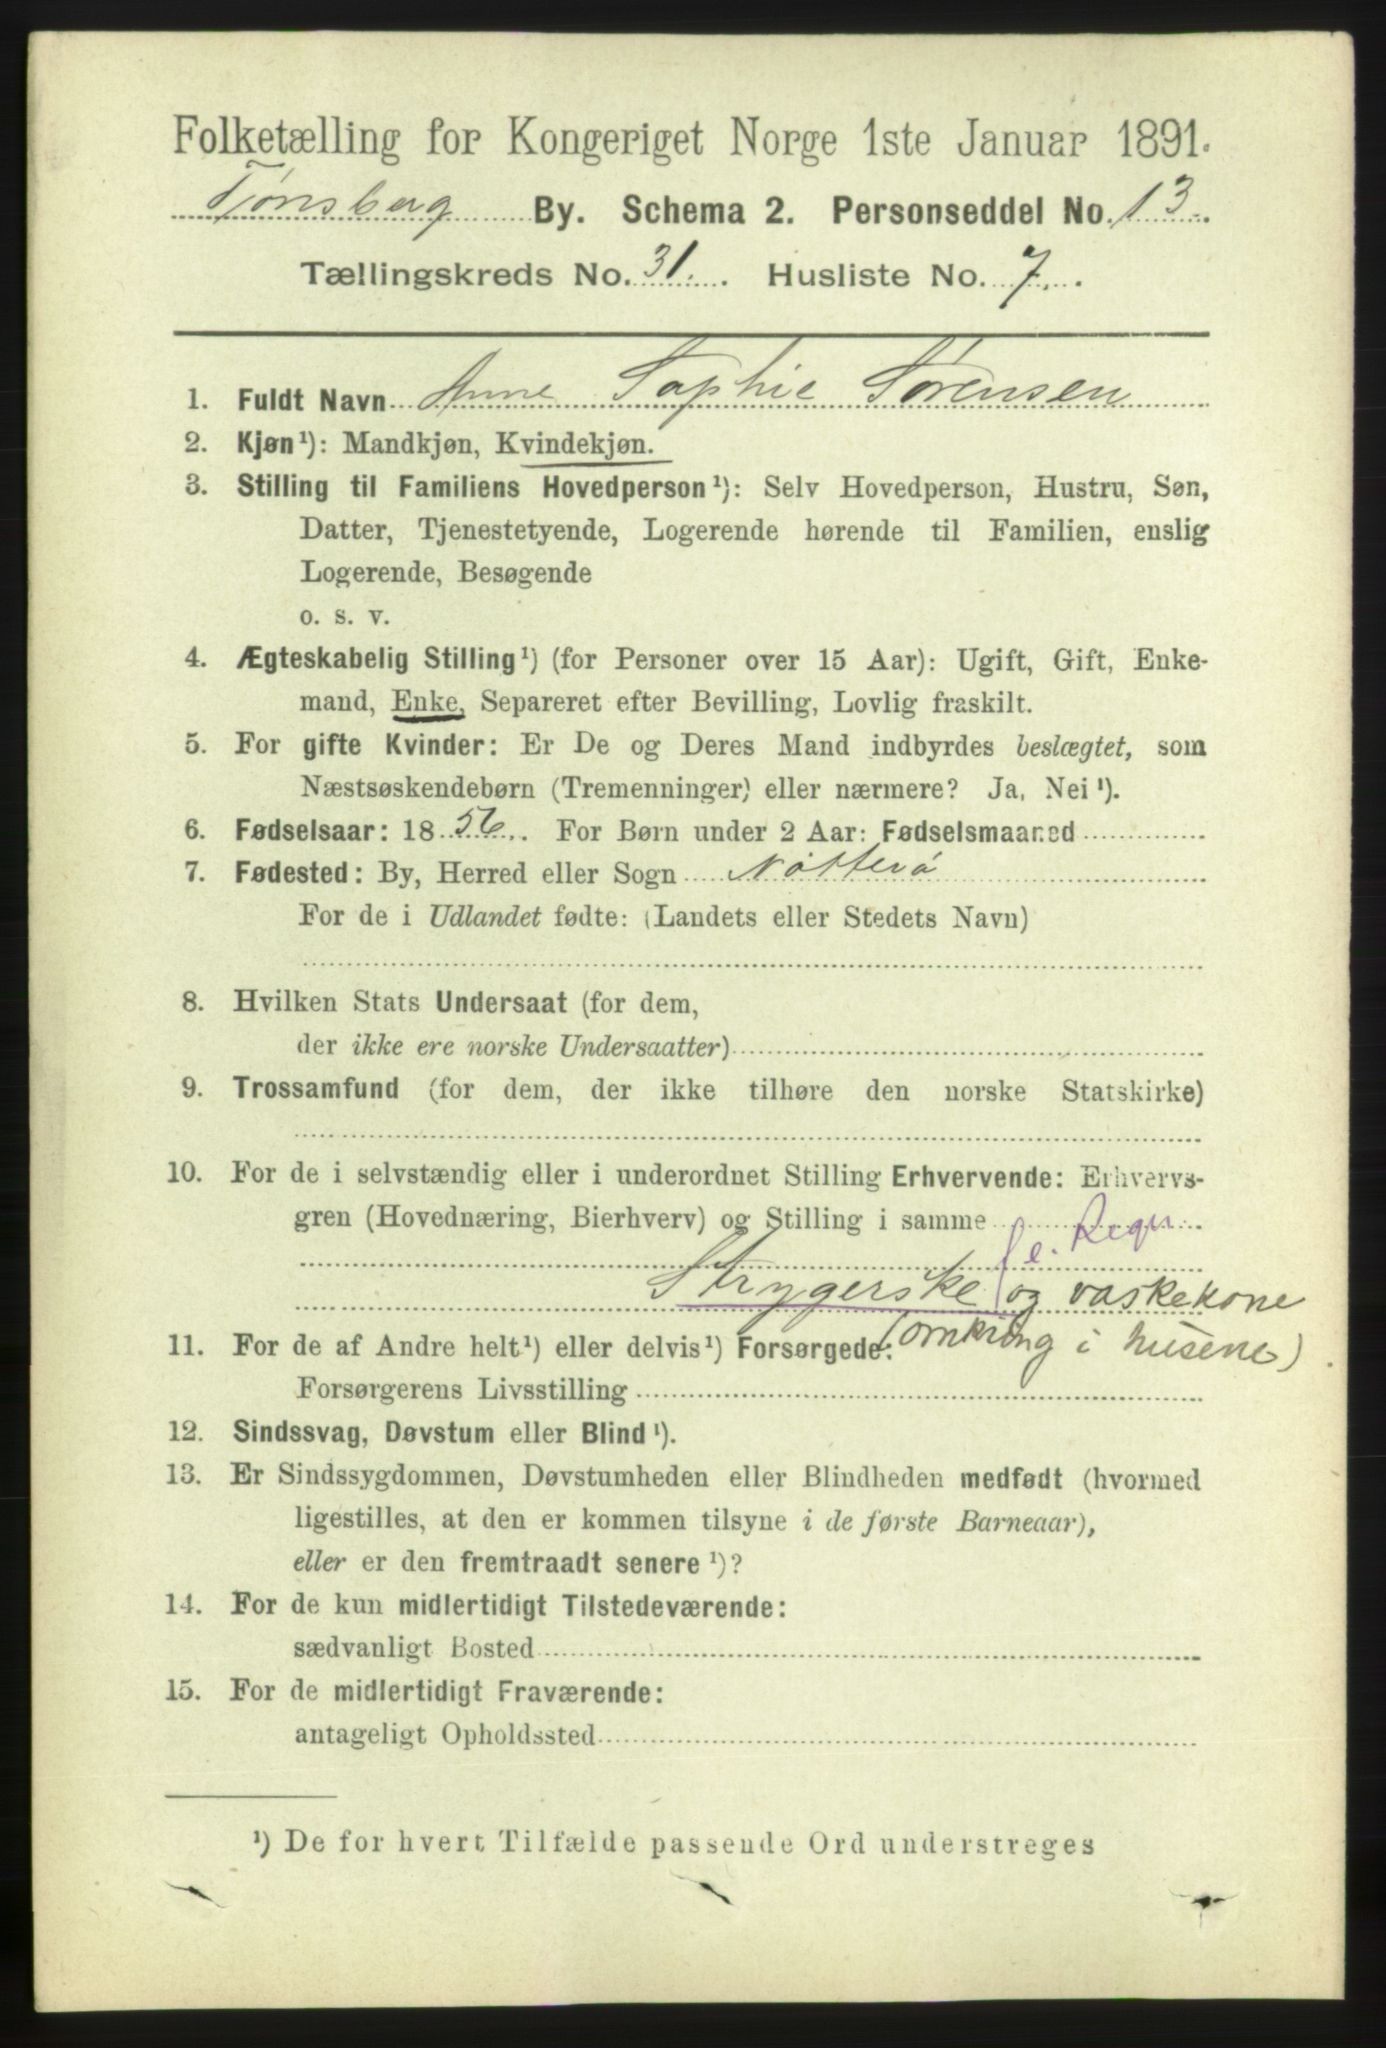 Folketælling for Kongeriget Norge 1ste Januar 1891.
Tønsberg By. Schema 2. Personseddel No. 13.
Tællingskreds No. 31. Husliste No. 7.
1. Fuldt Navn Anne Sophie Sørensen
2. Kjøn¹): Mandkjøn, Kvindekjøn.
3. Stilling til Familiens Hovedperson¹): Selv Hovedperson, Hustru, Søn,
Datter, Tjenestetyende, Logerende hørende til Familien, enslig
Logerende, Besøgende
o. s. v.
4. Ægteskabelig Stilling¹) (for Personer over 15 Aar): Ugift, Gift, Enke-
mand, Enke, Separeret efter Bevilling, Lovlig fraskilt.
5. For gifte Kvinder: Er De og Deres Mand indbyrdes beslægtet, som
Næstsøskendebørn (Tremenninger) eller nærmere? Ja, Nei¹).
6. Fødselsaar: 1856. For Børn under 2 Aar: Fødselsmaaned
7. Fødested: By, Herred eller Sogn Nøtterø
For de i Udlandet fødte: (Landets eller Stedets Navn)
8. Hvilken Stats Undersaat (for dem,
der ikke ere norske Undersaatter)
9. Trossamfund (for dem, der ikke tilhøre den norske Statskirke)
10. For de i selvstændig eller i underordnet Stilling Erhvervende: Erhvervs-
gren (Hovednæring, Bierhverv) og Stilling i samme
e. Regn
Strygerske og vaskekone
(omkring i husene)
11. For de af Andre helt¹) eller delvis¹) Forsørgede:
Forsørgerens Livsstilling
12. Sindssvag, Døvstum eller Blind¹).
13. Er Sindssygdommen, Døvstumheden eller Blindheden medfødt (hvormed
ligestilles, at den er kommen tilsyne i de første Barneaar),
eller er den fremtraadt senere¹)?
14. For de kun midlertidigt Tilstedeværende:
sædvanligt Bosted
15. For de midlertidigt Fraværende:
antageligt Opholdssted
¹) De for hvert Tilfælde passende Ord understreges